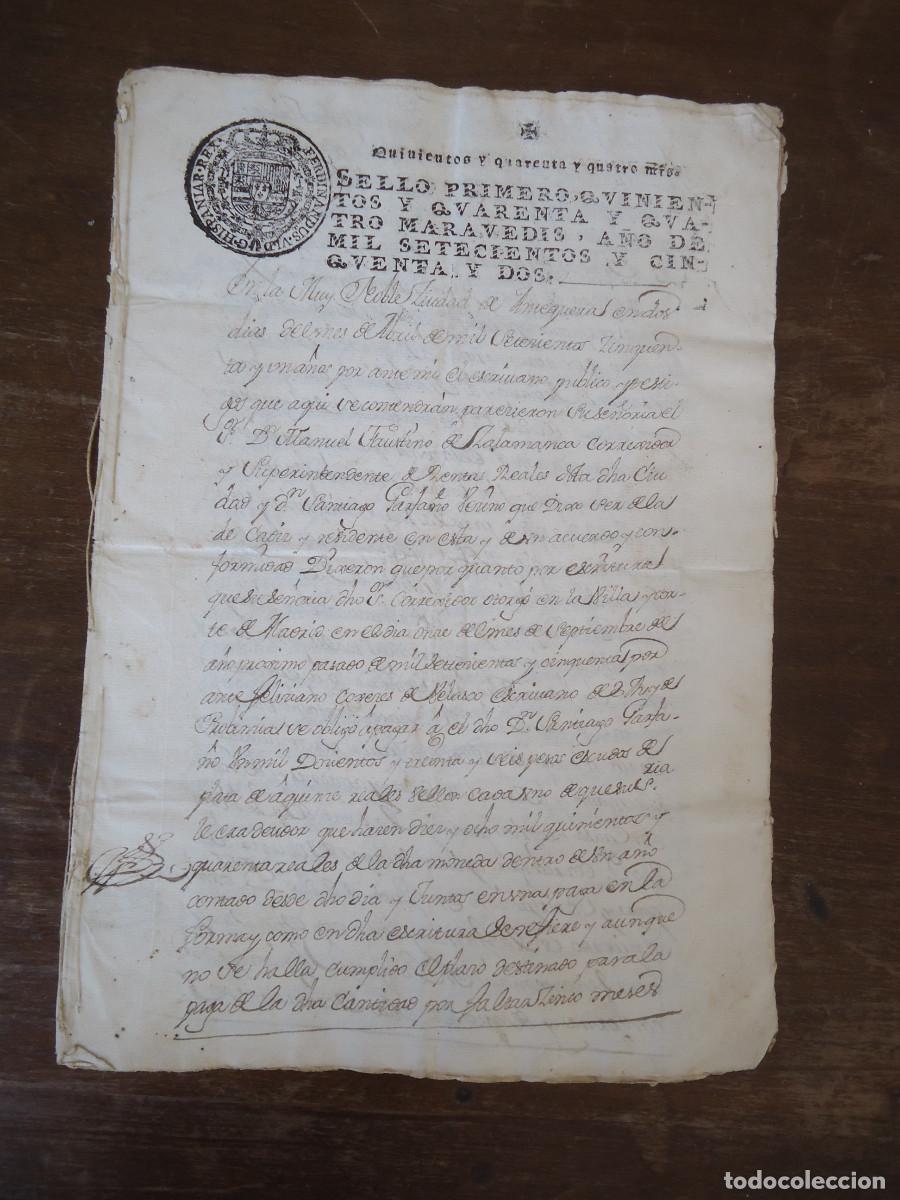 FERDINANDUS·VI·D·G·HISPANIAR·REX
Quinientos y quarenta y quatro mrs
SELLO PRIMERO, QVINIEN-
TOS Y QVARENTA Y QVA-
TRO MARAVEDIS, AÑO DE
MIL SETECIENTOS Y CIN-
QVENTA, Y DOS.
En la Muy Noble Ziudad de Antequera en dos
dias del mes de Abril de mil Setecientos Zinquen-
ta y un años por ante mi el escrivano publico y testi-
gos que aqui se contendrán parecieron Su Señoria el
Sr. Dn. Manuel Faustino de Salamanca Correxidor
y Superintendente de Rentas Reales desta dha Ciu
dad y dn Santiago Garfaño que Dixo ser de la
de Cadiz y residente en esta y de un acuerdo y con-
formidad Dixeron que por quanto por escriptura
que Su Señoria dho Sr. Correxidor otorgó en la Villa y cor-
te de Madrid en el dia onze del mes de Septiembre del
año proximo pasado de mil setecientos y cinquenta por
ante Feliziano de Velasco Escrivano de
Provincia se obligó a pagar â el dho Dn. Santiago Garfa-
ño un mil Docientos y treinta y seis pesos escudos de
plata de â quinze reales de vellon cada uno de que Su Sria
le era deudor que hacen diez y ocho mil quinientos y
quarenta reales de la dha moneda dentro de un año
contado desde dho dia y Juntos en una paga en la
forma y como en dha escritura se refiere y aunque
no se halla cumplido el plazo destinado para la
paga de la dha Cantidad por faltar Zinco meses
todocoleccion